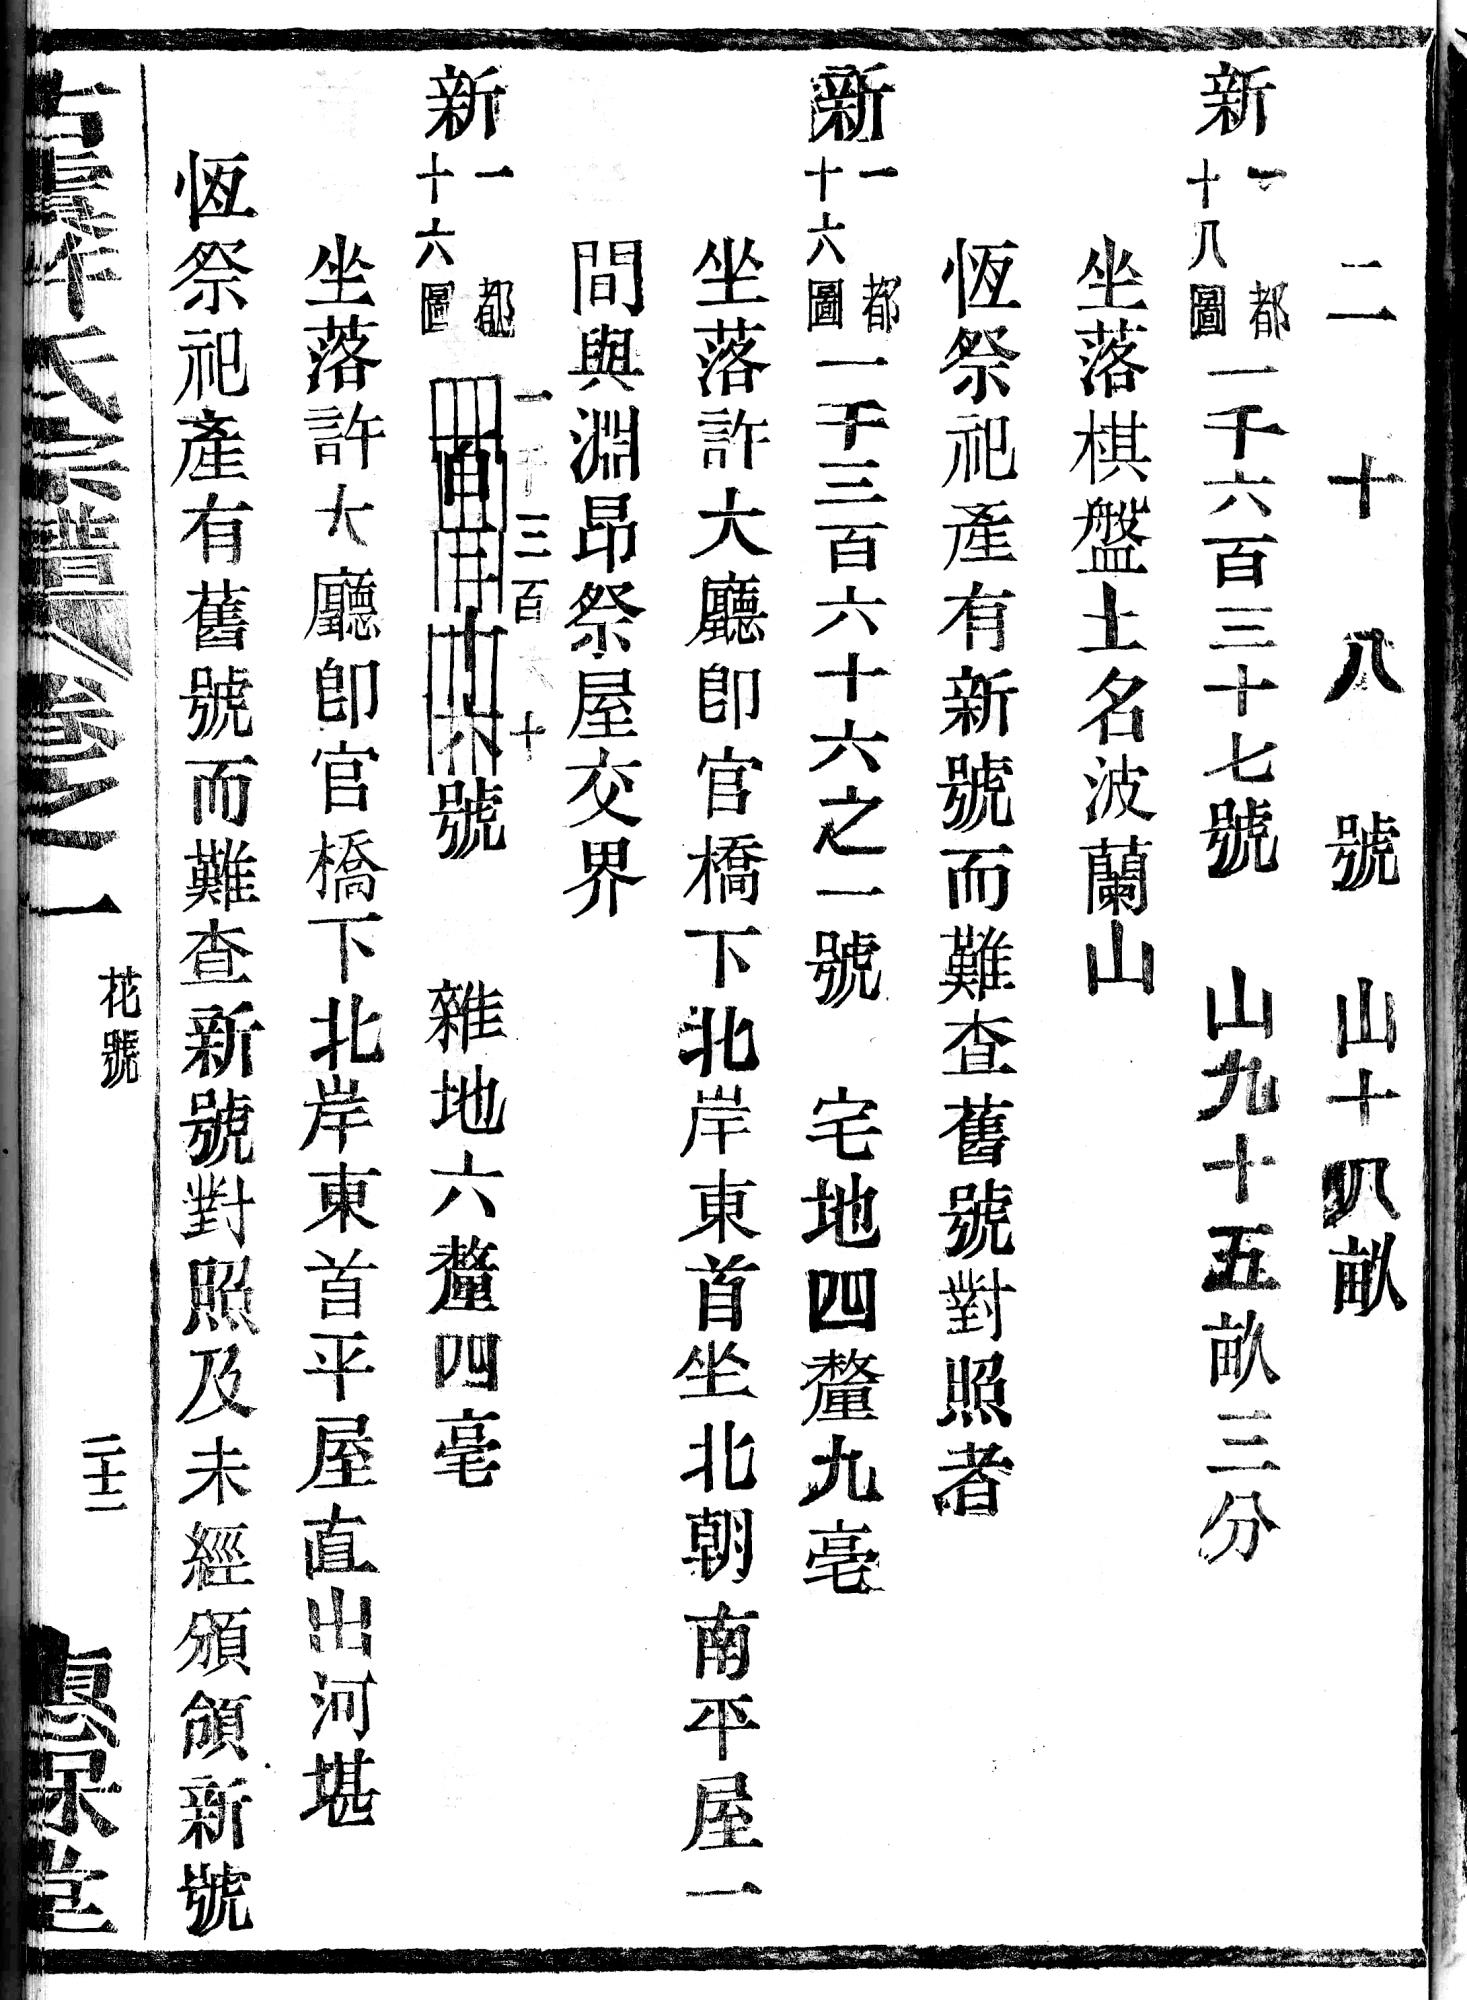 二十八號　山十八畝
新一都十八圖一千六百三十七號　山九十五畝三分
坐落棋盤土名波蘭山
恆祭祀產有新號而難查舊號對照者
新一都十六圖一千三百六十六之一號　宅地四釐九毫
坐落許大廳卽官橋下北岸東首坐北朝南平屋一
間與淵昂祭屋交界
新一都十六圖　號　雜地六釐四毫
一千三百六十
坐落許大廳卽官橋下北岸東首平屋直出河堪
恆祭祀產有舊號而難查新號對照及未經頒領新號
氏宗譜　卷之一　花號　二十二　惠保堂